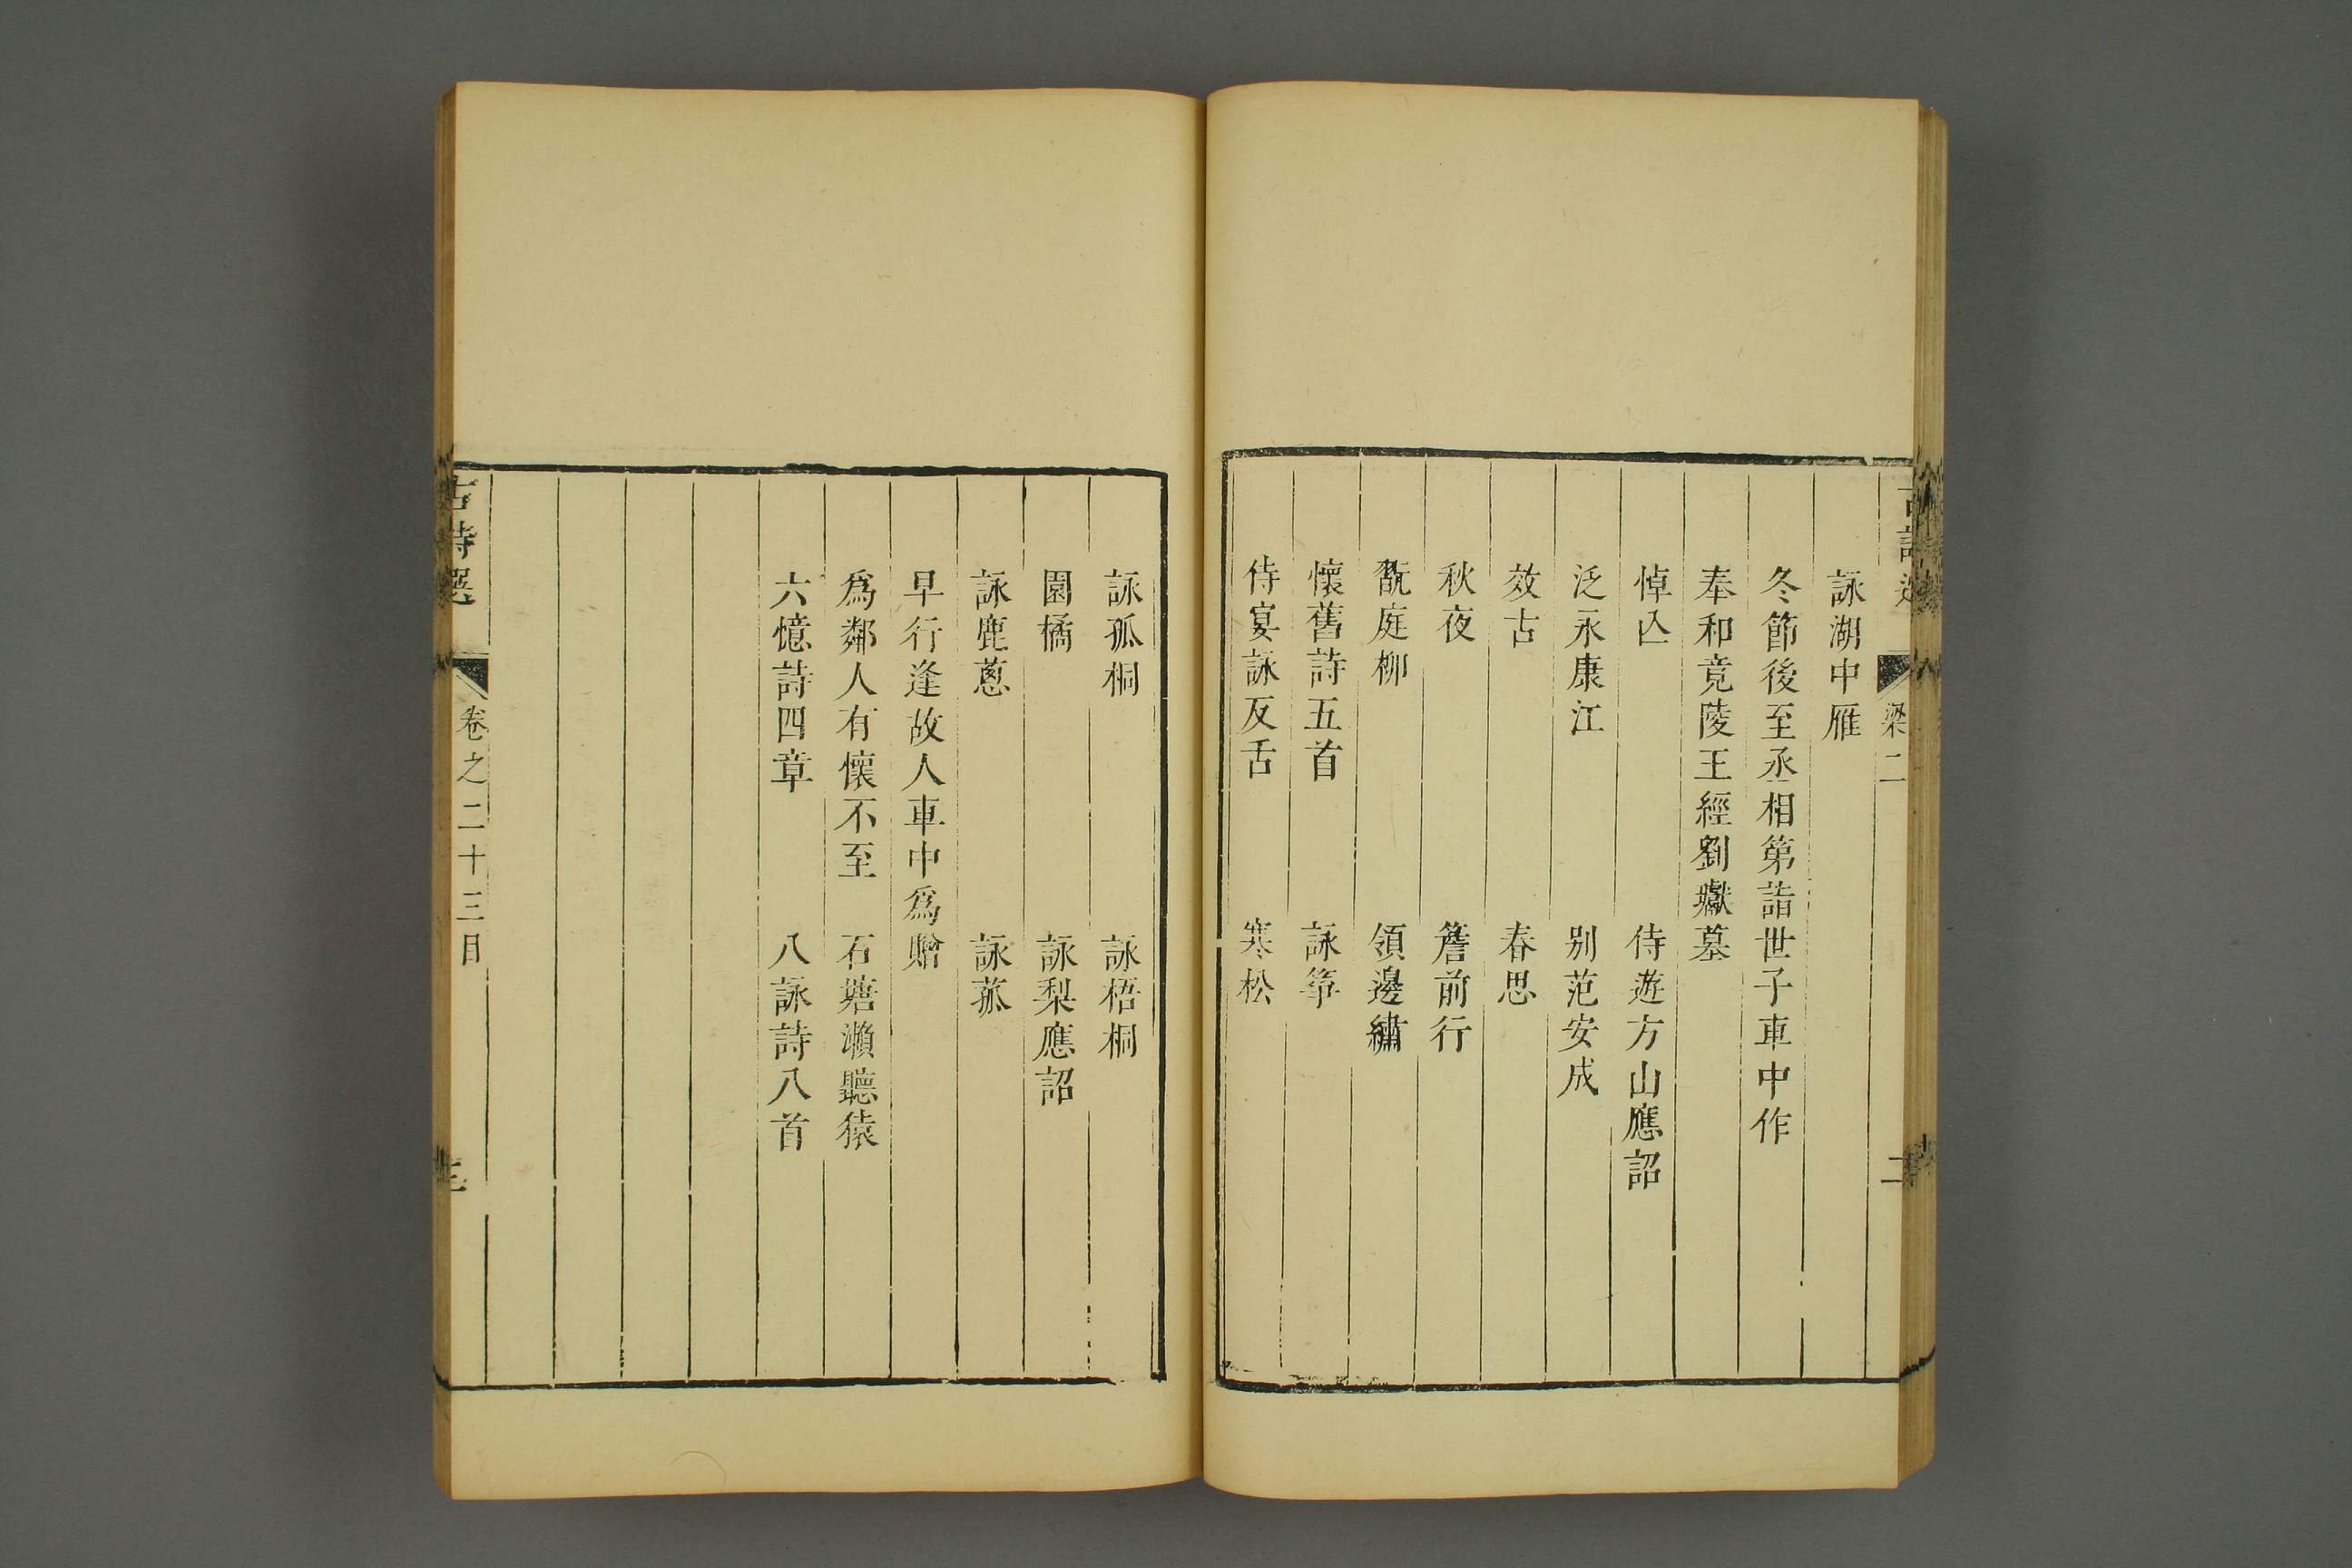 梁二
詠湖中雁
冬節後至丞相第詣世子車中作
奉和竟陵王經劉瓛墓
悼亾 侍遊方山應詔
泛永康江 別范安成
效古 春思
秋夜 簷前行
翫庭柳 領邊繡
懷舊詩五首 詠箏
侍宴詠反舌 寒松
詠孤桐 詠梧桐
園橘 詠梨應詔
詠鹿蔥 詠菰
早行逢故人車中爲贈
爲鄰人有懷不至 石塘瀨聽猿
六憶詩四章 八詠詩八首
古詩選 卷之二十三目 三